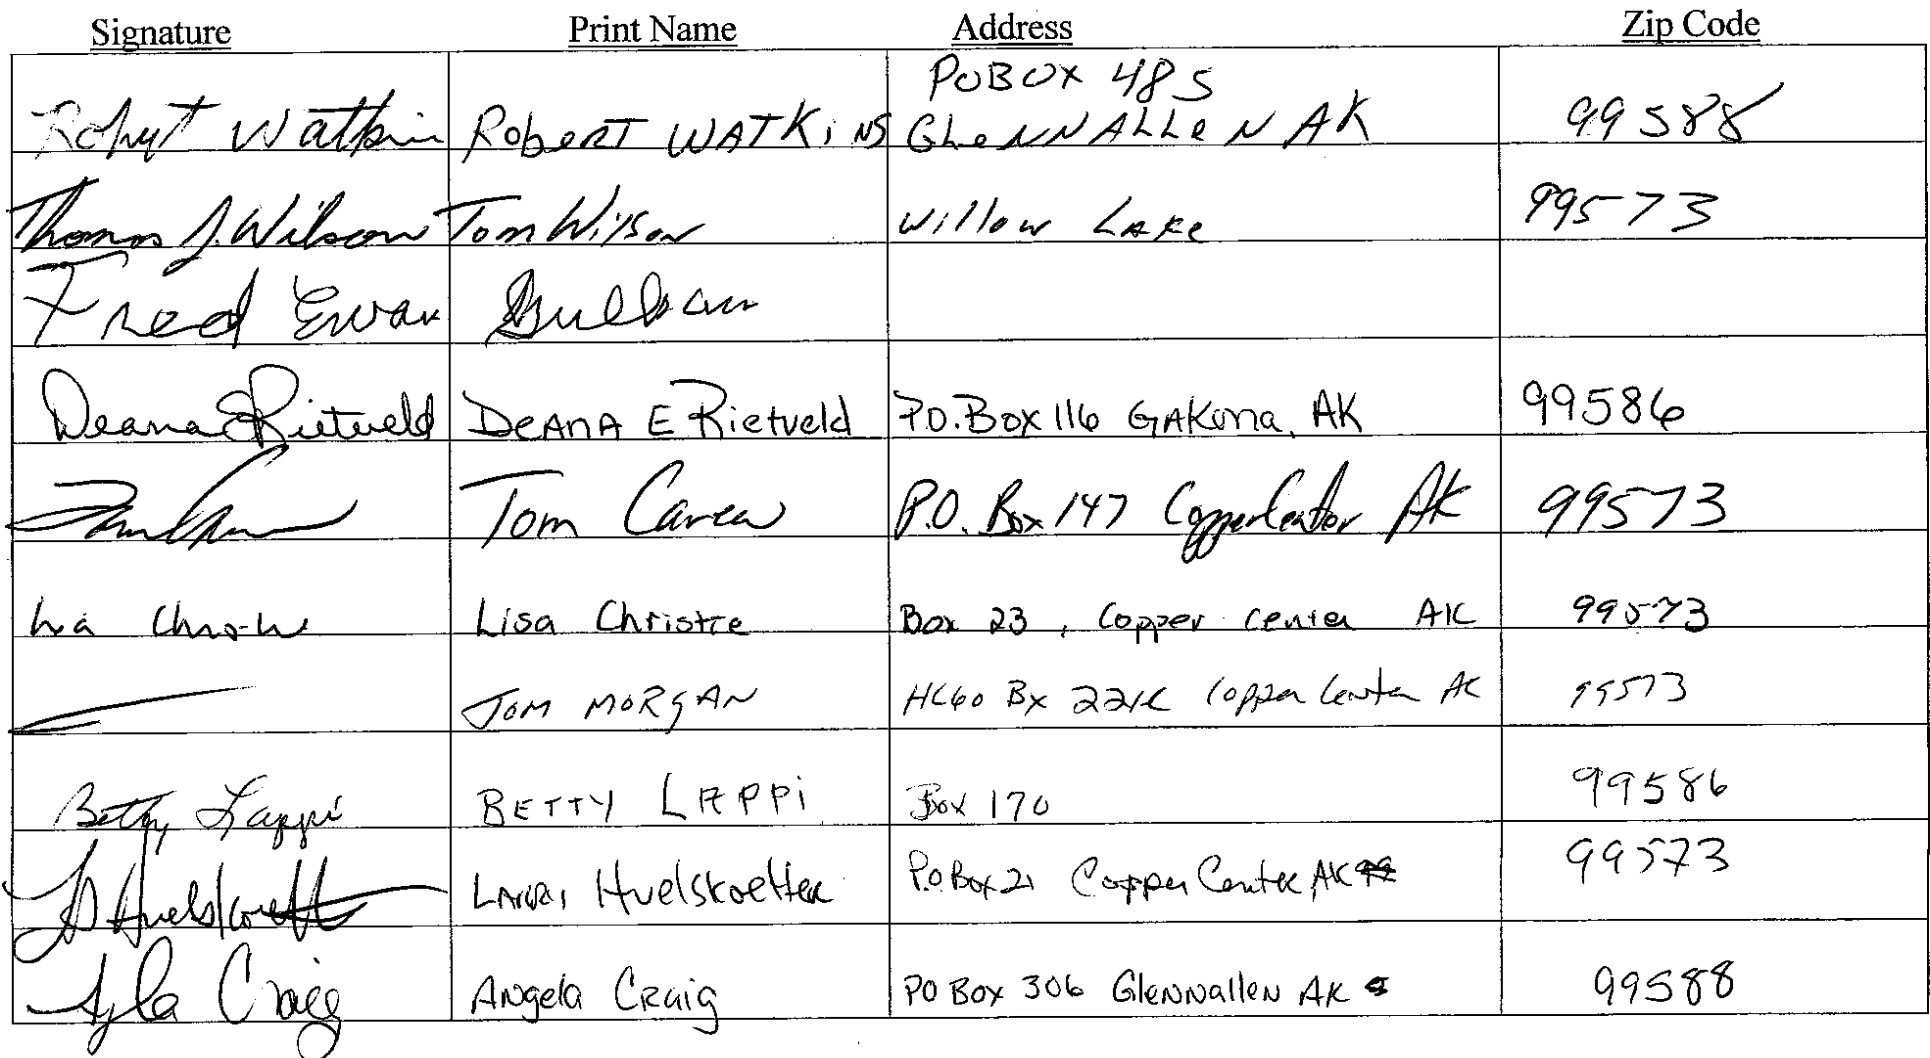 Signature Print Name Address Zip Code
PO BOX 485
Robert Watkins Robert WATKiNS GLeNNALLeN AK 99588
Thomas J. Wilson Tom Wilson Willow Lake 99573
Fred Ewan
Deana E Rietveld DeAnA E Rietveld P.O. Box 116 GAKona, AK 99586
Tom Carew P.O. Box 147 CopperCenter AK 99573
Lisa Christie Box 23, Copper center AK 99573
Tom MORgAN HC60 Bx Copper Center AK 99573
Betty Lappi BETTY LAPPi Box 170 99586
Huelskoetter P.O Box 21 Copper Center AK 99573
Craig Angela Craig PO Box 306 Glennallen AK 99588